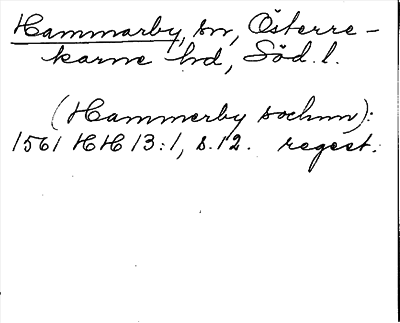 Hammarby, sn, Österre-
karne hd, Söd. l.
(Hammerby sochnn):
1561 HH 13:1, s. 12. regest.